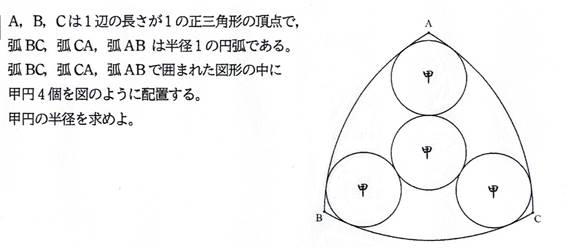 A，B，Cは1辺の長さが1の正三角形の頂点で，
弧BC，弧CA，弧AB は半径1の円弧である。
弧BC，弧CA，弧ABで囲まれた図形の中に
甲円4個を図のように配置する。
甲円の半径を求めよ。
A
甲
甲
甲
甲
B
C